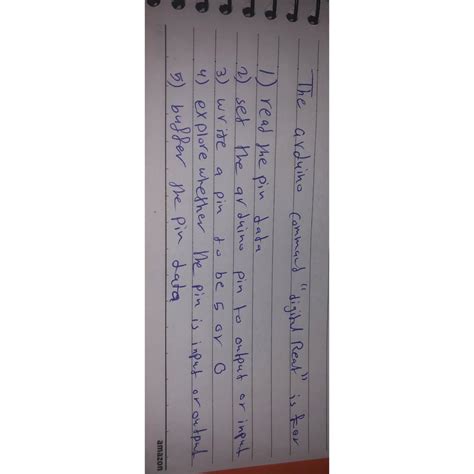 The arduino command "digital Reat" is for
1) read the pin data
2) set the arduino pin to output or input
3) write a pin to be 5 or 0
4) explore whether the pin is input or output
5) buffer the pin data
amazon